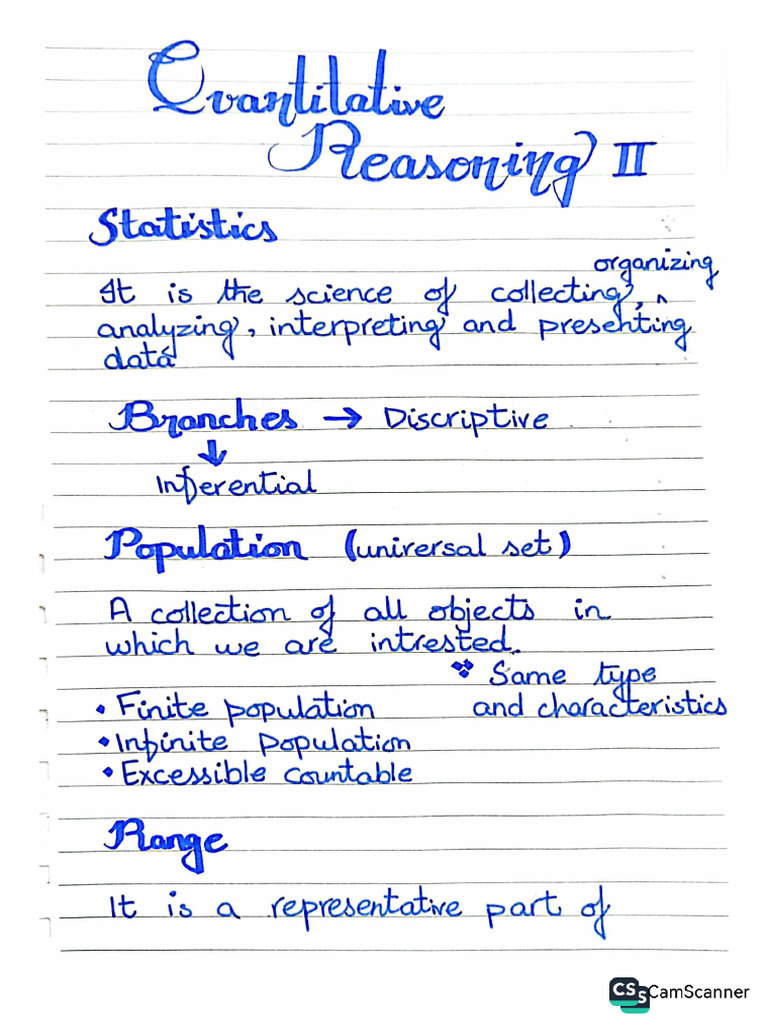 Quantitative
Reasoning II
Statistics
organizing
It is the science of collecting, ^
analyzing, interpreting and presenting
data
Branches → Discriptive
↓
Inferential
Population (universal set)
A collection of all objects in
which we are intrested.
❖ Same type
and characteristics
• Finite population
• Infinite population
• Excessible countable
Range
It is a representative part of
CS CamScanner